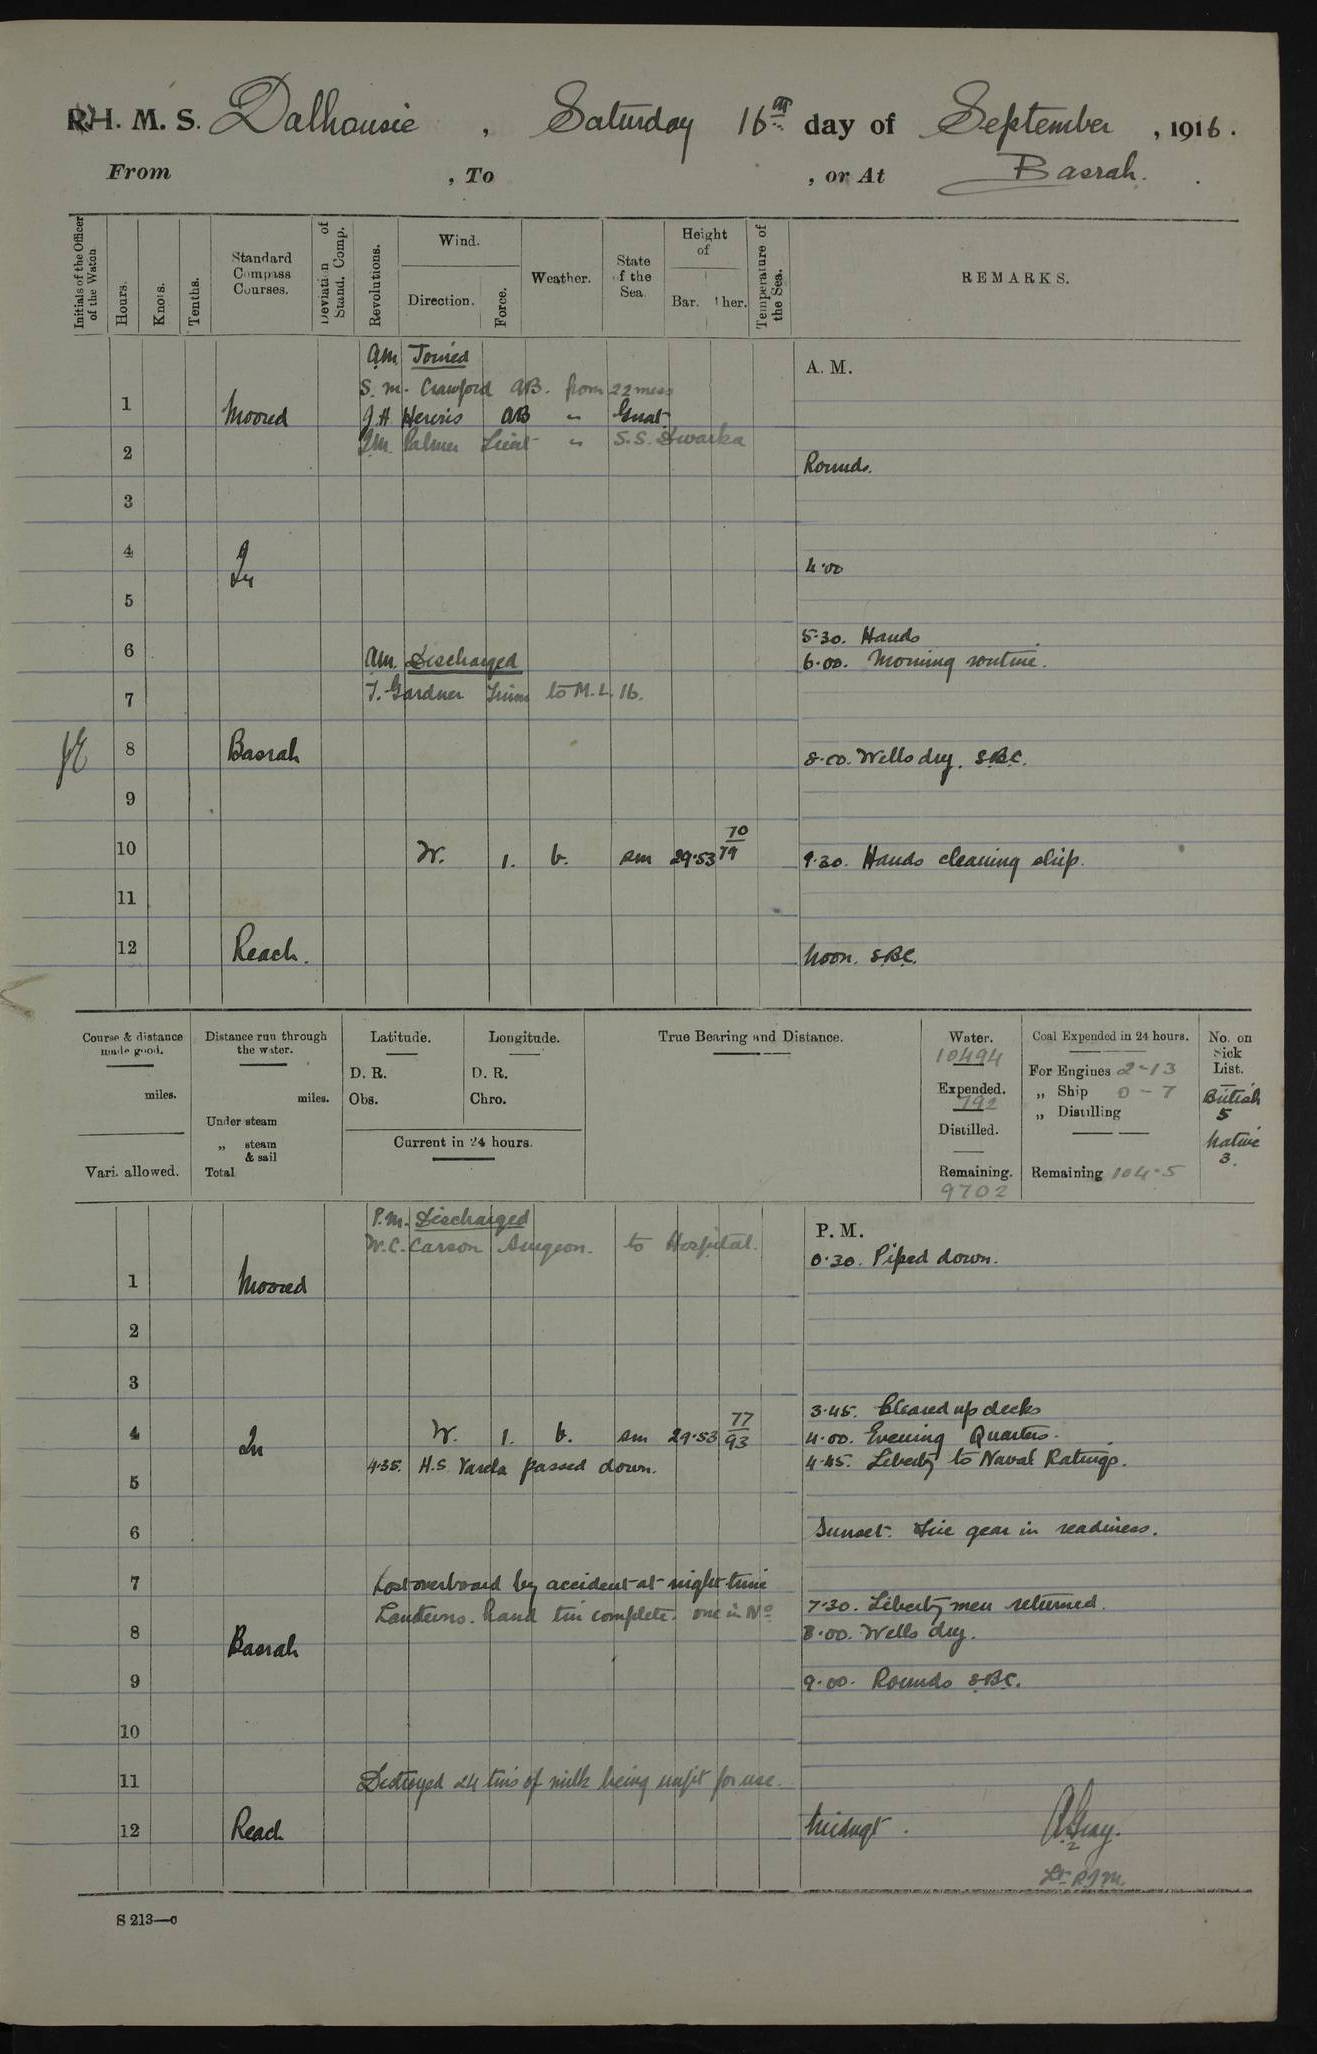 H. M. S. Dalhousie , Saturday 16th day of September , 1916.
From , To , or At Basrah.
Initials of the Officer of the Watch
Hours.
Knots.
Tenths.
Standard Compass Courses.
Deviation of Stand. Comp.
Revolutions.
Wind.
Direction.
Force.
Weather.
State of the Sea.
Height of
Bar. Ther.
Temperature of the Sea.
REMARKS.
A. M.
AM Joined
S. M. Crawford AB. from 22 mess
1 Moored J. H. AB " Gnat
Palmer Lieut " S.S. Dwarka
2 Rounds.
3
4 In 4.00
5
5.30. Hands
6 AM. Discharged 6.00. Morning routine.
7 T. Gardner to M. L. 16.
8 Basrah 8.00. Wells dry. SBC.
9
10 W. 1. b. sm 29.53 70/79 9.30. Hands cleaning ship.
11
12 Reach. Noon. SBC.
Course & distance made good.
miles.
Vari. allowed.
Distance run through the water.
miles.
Under steam
„ steam & sail
Total
Latitude.
D. R.
Obs.
Longitude.
D. R.
Chro.
Current in 24 hours.
True Bearing and Distance.
Water.
10494
Expended.
792
Distilled.
Remaining.
9702
Coal Expended in 24 hours.
For Engines 2-13
„ Ship 0-7
„ Distilling
Remaining 104-5
No. on Sick List.
British
5
Native
3.
P. M.
P.M. Discharged
W. C. Carson Surgeon. to Hospital. 0.30. Piped down.
1 Moored
2
3
3.45. Cleared up decks
4 In W. 1. b. sm 29.53 77/93 4.00. Evening Quarters.
4.35. H.S. Varela passed down. 4.45. Liberty to Naval Ratings.
5
6 Sunset. Fire gear in readiness.
7 Lost overboard by accident at night time
Lanterns. hand tin complete. one in No 7.30. Liberty men returned.
8 Basrah 8.00. Wells dry.
9 9.00. Rounds SBC.
10
11 Destroyed 24 tins of milk being unfit for use.
12 Reach Midngt. Gray.
Lt. R.I.M.
S 213—c